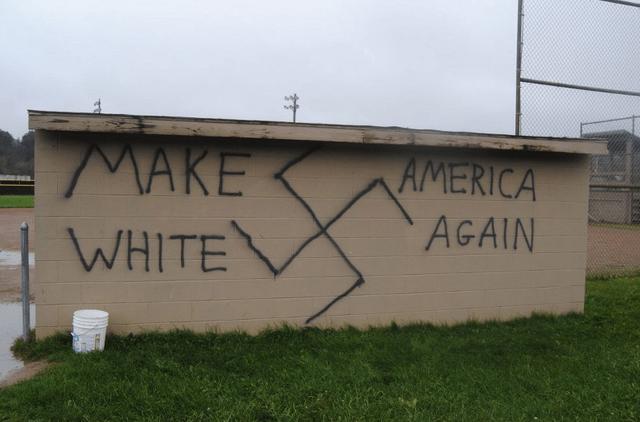 MAKE AMERICA
WHITE AGAIN